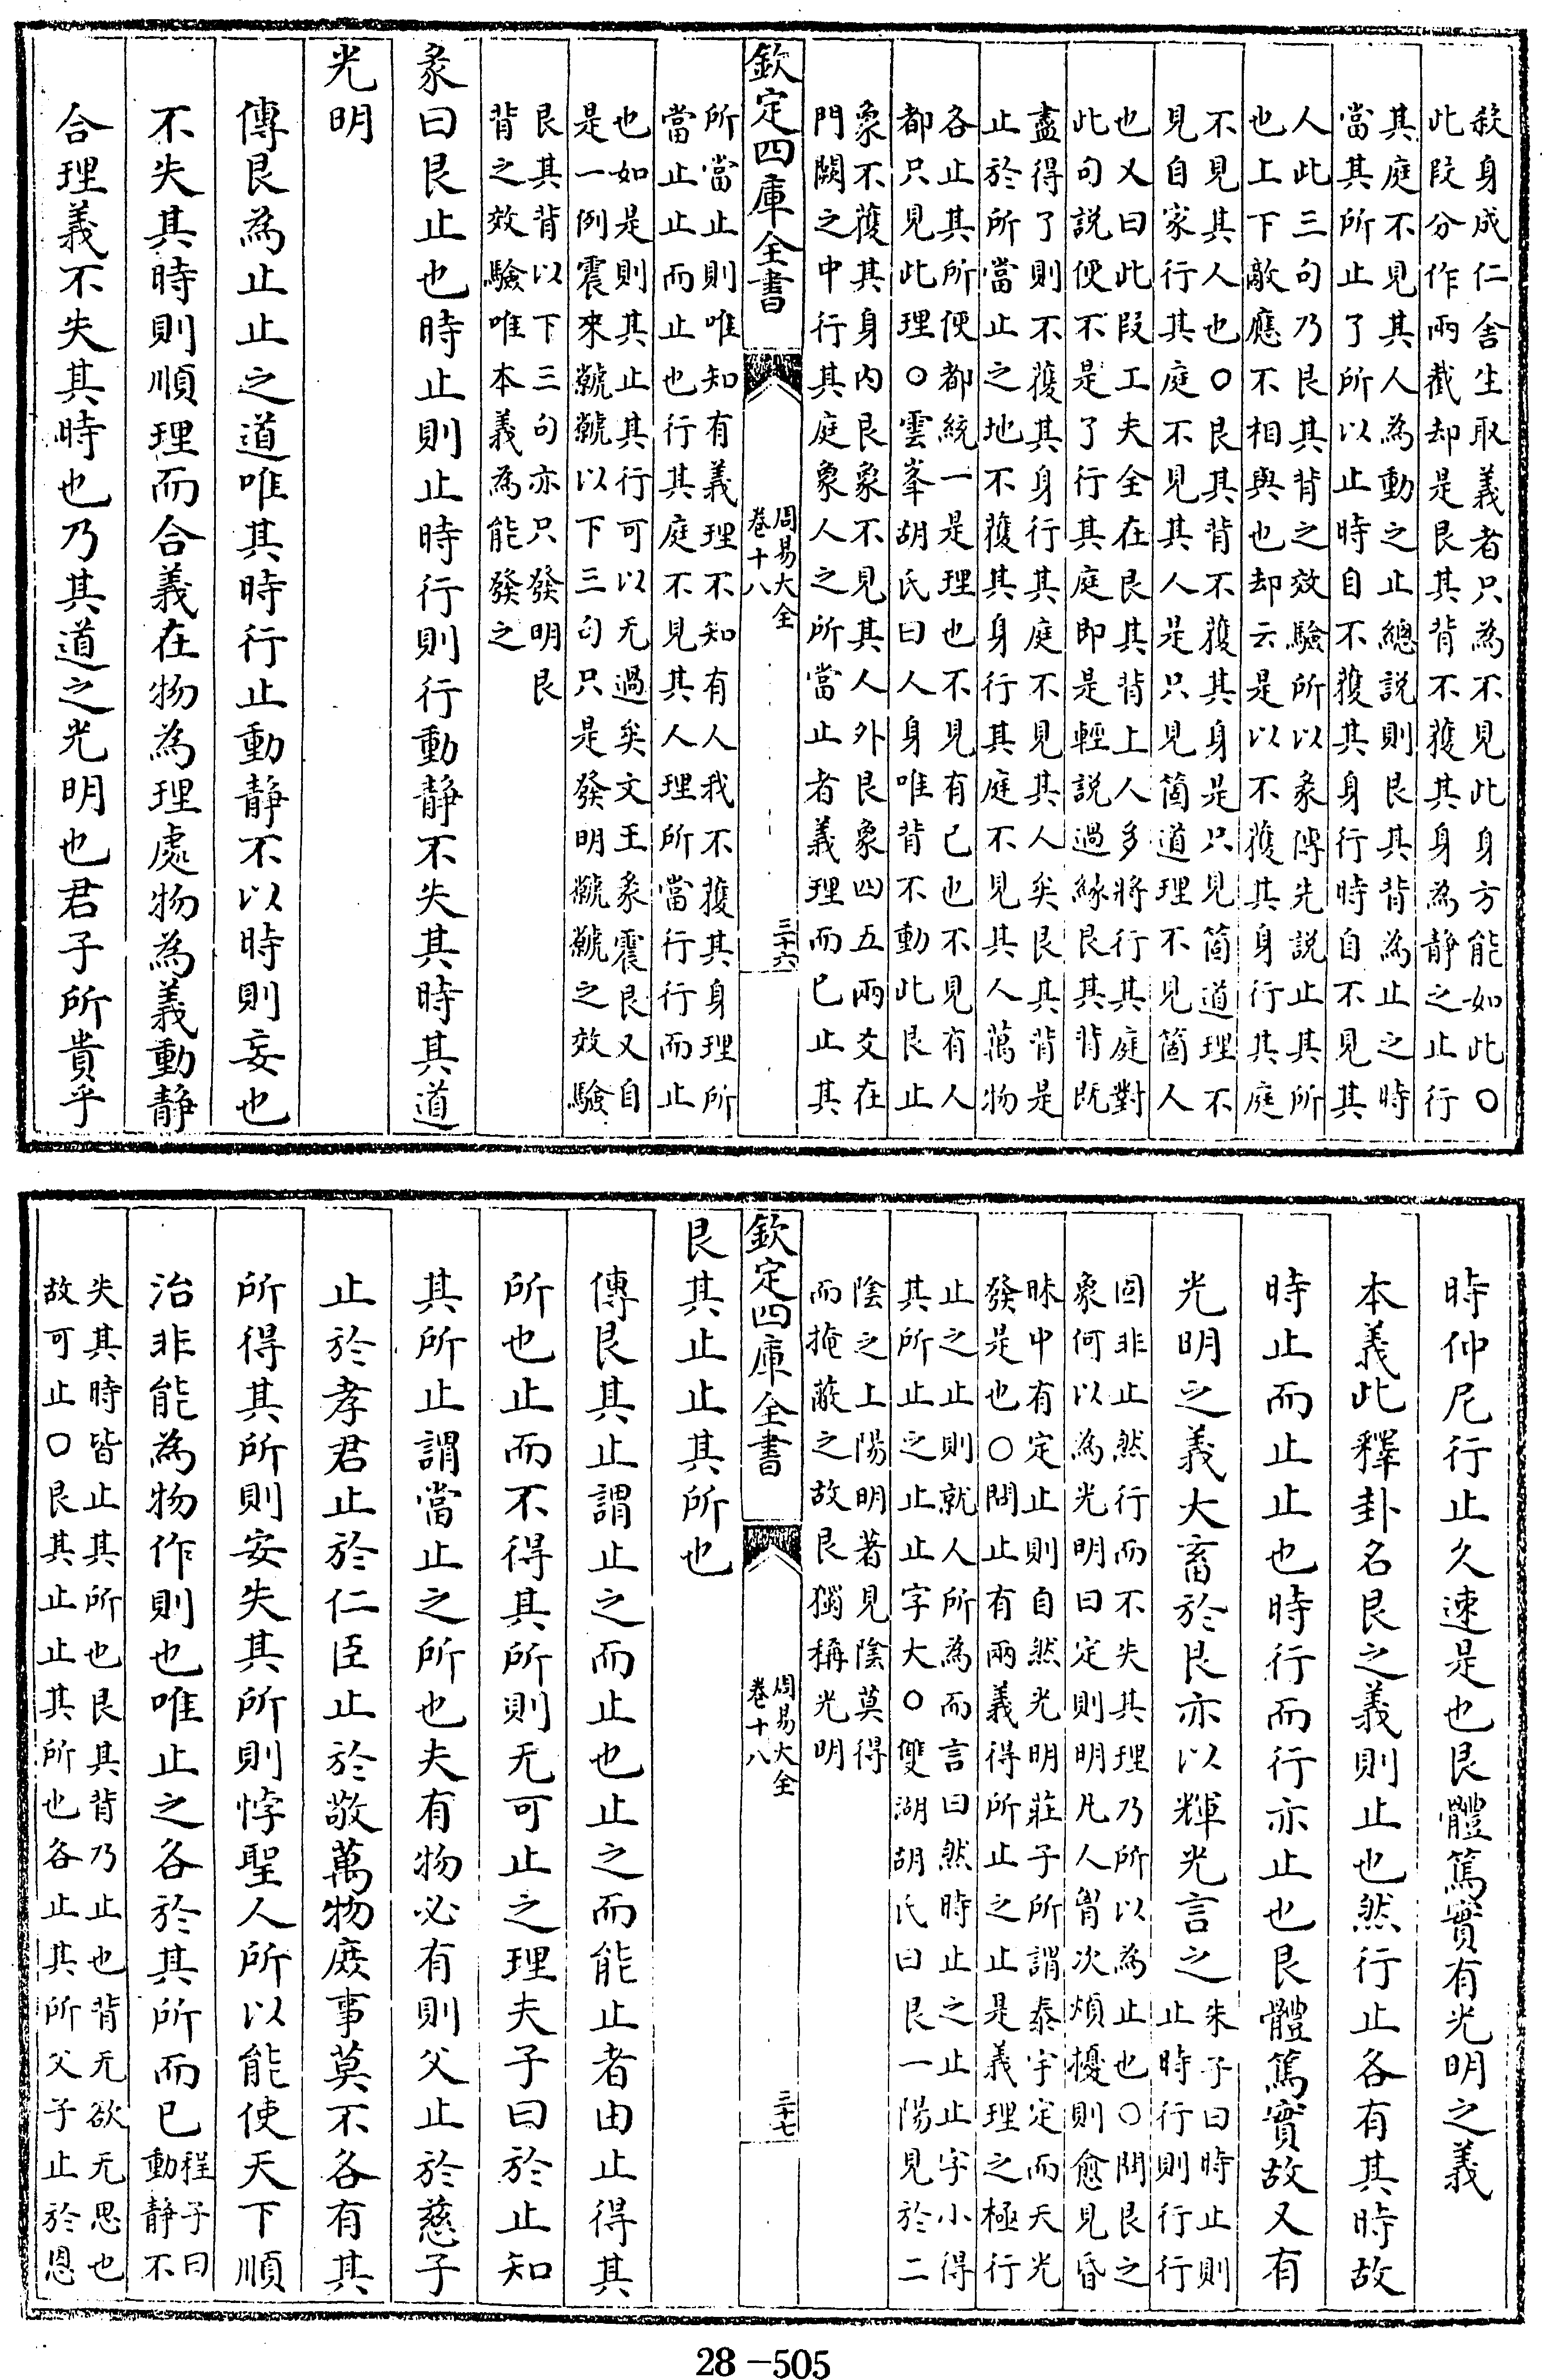 殺身成仁舎生取義者只為不見此身方能如此〇
此段分作兩截却是艮其背不獲其身為靜之止行
其庭不見其人為動之止總說則艮其背為止之時
當其所止了所以止時自不獲其身行時自不見其
人此三句乃艮其背之效驗所以彖傳先說止其所
也上下敵應不相與也却云是以不獲其身行其庭
不見其人也〇艮其背不獲其身是只見箇道理不
見自家行其庭不見其人是只見箇道理不見箇人
也又曰此段工夫全在艮其背上人多將行其庭對
此句說便不是了行其庭即是輕說過緣艮其背既
盡得了則不獲其身行其庭不見其人矣艮其背是
止於所當止之地不獲其身行其庭不見其人萬物
各止其所便都統一是理也不見有己也不見有人
都只見此理〇雲峯胡氏曰人身唯背不動此艮止
象不獲其身内艮象不見其人外艮象四五兩爻在
門闕之中行其庭象人之所當止者義理而已止其
欽定四庫全書
周易大全
卷十八
三十六
所當止則唯知有義理不知有人我不獲其身理所
當止止而止也行其庭不見其人理所當行行而止
也如是則其止其行可以无過矣文王彖震艮又自
是一例震來虩虩以下三句只是發明虩虩之效驗
艮其背以下三句亦只發明艮
背之效驗唯本義為能發之
彖曰艮止也時止則止時行則行動靜不失其時其道
光明
傳艮為止止之道唯其時行止動靜不以時則妄也
不失其時則順理而合義在物為理處物為義動靜
合理義不失其時也乃其道之光明也君子所貴乎
時仲尼行止久速是也艮體篤實有光明之義
本義此釋卦名艮之義則止也然行止各有其時故
時止而止止也時行而行亦止也艮體篤實故又有
光明之義大畜於艮亦以輝光言之
朱子曰時止則
止時行則行行
固非止然行而不失其理乃所以為止也〇問艮之
象何以為光明曰定則明凡人胷次煩擾則愈見昏
昧中有定止則自然光明莊子所謂泰宇定而天光
發是也〇問止有兩義得所止之止是義理之極行
止之止則就人所為而言曰然時止之止止字小得
其所止之止止字大〇雙湖胡氏曰艮一陽見於二
陰之上陽明著見陰莫得
而掩蔽之故艮獨稱光明
欽定四庫全書
周易大全
卷十八
三十七
艮其止止其所也
傳艮其止謂止之而止也止之而能止者由止得其
所也止而不得其所則无可止之理夫子曰於止知
其所止謂當止之所也夫有物必有則父止於慈子
止於孝君止於仁臣止於敬萬物庶事莫不各有其
所得其所則安失其所則悖聖人所以能使天下順
治非能為物作則也唯止之各於其所而已
程子曰
動靜不
失其時皆止其所也艮其背乃止也背无欲无思也
故可止〇艮其止止其所也各止其所父子止於恩
28-505